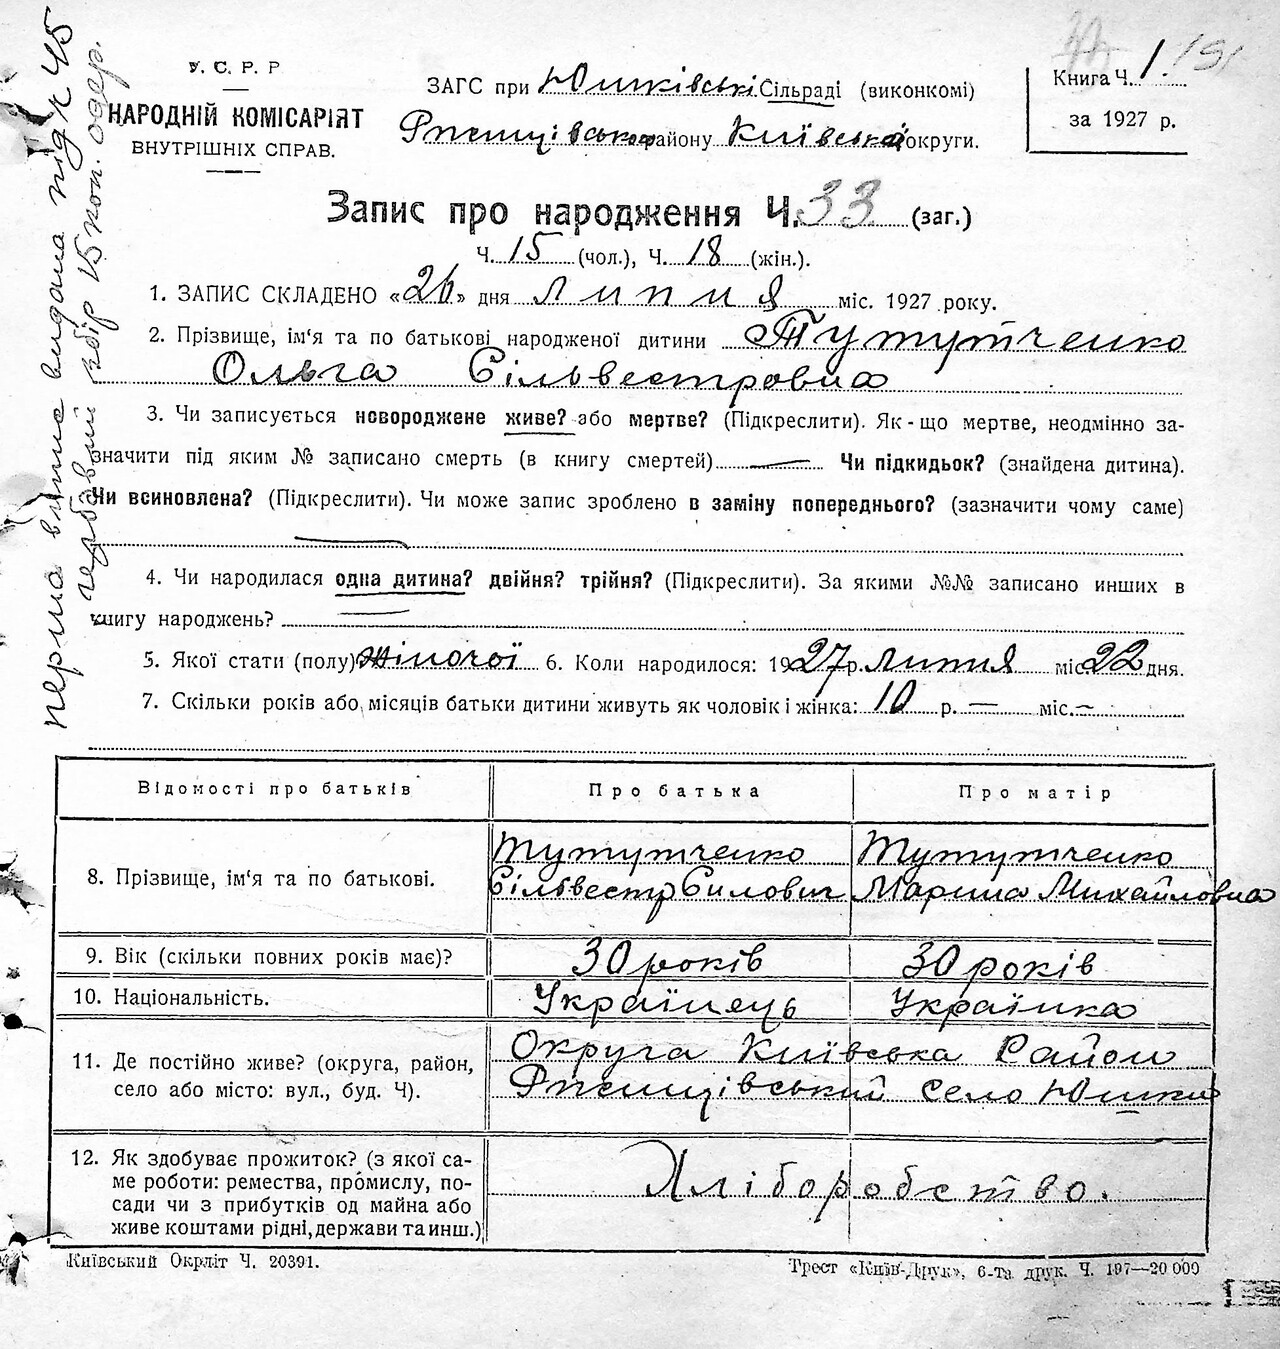 перша випис видана під ч 45
гербовий збір 15 коп. одер.
У. С. Р. Р
НАРОДНІЙ КОМІСАРІЯТ
ВНУТРІШНІХ СПРАВ.
ЗАГС при Юшківські Сільраді (виконкомі)
Ржищівською району Київської округи.
Книга Ч. 1.
за 1927 р.
Запис про народження Ч. 33 (заг.)
Ч. 15 (чол.), Ч. 18 (жін.).
1. ЗАПИС СКЛАДЕНО «26» дня липня міс. 1927 року.
2. Прізвище, ім‘я та по батькові народженої дитини Тутутченко
Ольга Сільвестровна
3. Чи записується новороджене живе? або мертве? (Підкреслити). Як-що мертве, неодмінно за-
значити під яким № записано смерть (в книгу смертей) — Чи підкидьок? (знайдена дитина).
Чи всиновлена? (Підкреслити). Чи може запис зроблено в заміну попереднього? (зазначити чому саме)
—
4. Чи народилася одна дитина? двійня? трійня? (Підкреслити). За якими №№ записано инших в
книгу народжень? —
5. Якої стати (полу) жіночої 6. Коли народилося: 1927 р. липня міс. 22 дня.
7. Скільки років або місяців батьки дитини живуть як чоловік і жінка: 10 р. — міс. —
Відомості про батьків Про батька Про матір
8. Прізвище, ім‘я та по батькові. Тутутченко Сільвестр Силович Тутутченко Марина Михайловна
9. Вік (скільки повних років має)? 30 років 30 років
10. Національність. Українець Українка
11. Де постійно живе? (округа, район, Округа Київська Район
село або місто: вул., буд. Ч). Ржищівський село Юшки
12. Як здобуває прожиток? (з якої са-
ме роботи: ремества, промислу, по- Хліборобство.
сади чи з прибутків од майна або
живе коштами рідні, держави та инш.)
Київський Окрліт Ч. 20391.
Трест «Київ-Друк», 6-та друк. Ч. 197—20 000